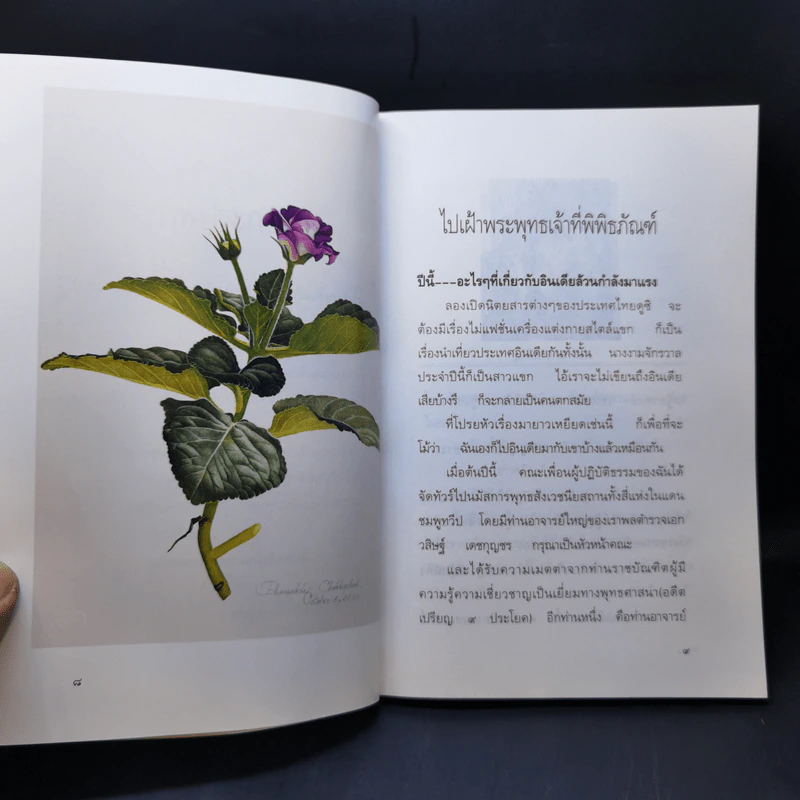 ๘
ไปเฝ้าพระพุทธเจ้าที่พิพิธภัณฑ์
ปีนี้---อะไรๆที่เกี่ยวกับอินเดียล้วนกำลังมาแรง
ลองเปิดนิตยสารต่างๆของประเทศไทยดูซิ จะ
ต้องมีเรื่องไม่แฟชั่นเครื่องแต่งกายสไตล์แขก ก็เป็น
เรื่องนำเที่ยวประเทศอินเดียกันทั้งนั้น นางงามจักรวาล
ประจำปีนี้ก็เป็นสาวแขก ไอ้เราจะไม่เขียนถึงอินเดีย
เสียบ้างรึ ก็จะกลายเป็นคนตกสมัย
ที่โปรยหัวเรื่องมายาวเหยียดเช่นนี้ ก็เพื่อที่จะ
โม้ว่า ฉันเองก็ไปอินเดียมากับเขาบ้างแล้วเหมือนกัน
เมื่อต้นปีนี้ คณะเพื่อนผู้ปฏิบัติธรรมของฉันได้
จัดทัวร์ไปนมัสการพุทธสังเวชนียสถานทั้งสี่แห่งในแดน
ชมพูทวีป โดยมีท่านอาจารย์ใหญ่ของเราพลตำรวจเอก
วสิษฐ์ เดชกุญชร กรุณาเป็นหัวหน้าคณะ
และได้รับความเมตตาจากท่านราชบัณฑิตผู้มี
ความรู้ความเชี่ยวชาญเป็นเยี่ยมทางพุทธศาสนา(อดีต
เปรียญ ๙ ประโยค) อีกท่านหนึ่ง คือท่านอาจารย์
๙